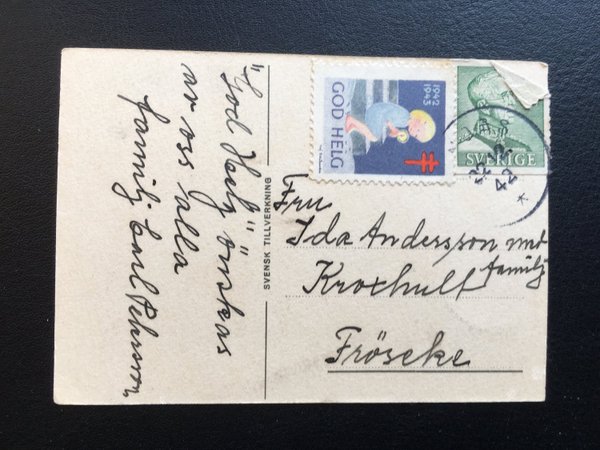 "God Helg" önskas
av oss alla
familj Carl
SVENSK TILLVERKNING
1942
1943
GOD HELG
SVERIGE
42
Fru
Ida Andersson med
familj
Kroxhult
Fröseke